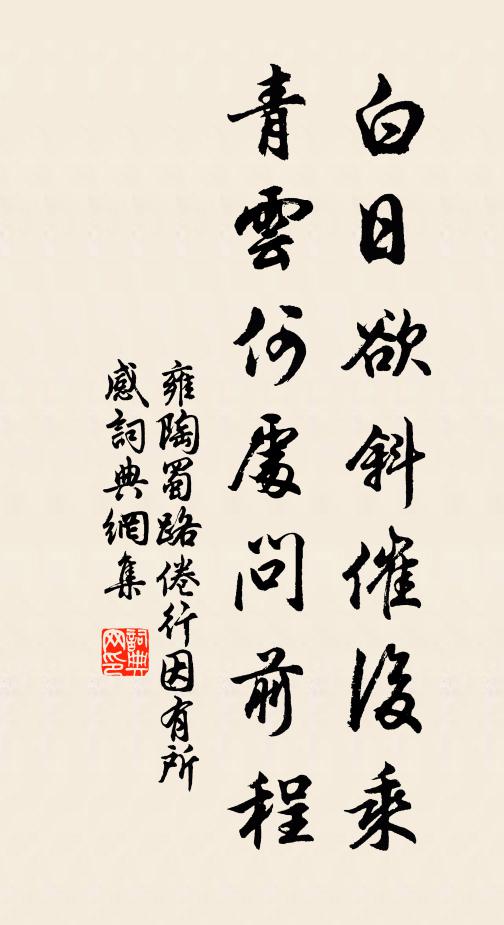 白日欲斜催後乘
青雲何處問前程
雍陶蜀路倦行因有所
感詞典網集
詞典
网印